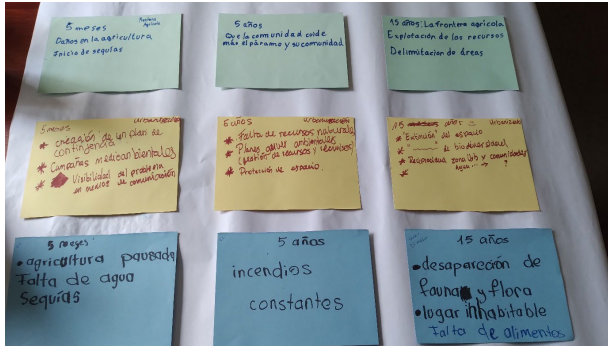 5 meses
Frontera
Agrícola
Daños en la agricultura
Inicio de sequías
5 años
Que la comunidad cuide
más el páramo y su comunidad
15 años: La frontera agrícola
Explotación de los recursos
Delimitación de áreas
5 meses
* creación de un plan de
contingencia
* Campañas medioambientales
* Visibilidad del problema
en medios de comunicación
5 años
* Falta de recursos naturales
* Planes
ambientales
(gestión de recursos y
)
* Protección de espacio
15
años
* "Extinción" del espacio
* "
" de biodiversidad
*
zona
y comunidades
*
5 meses
• agricultura pausada
Falta de agua
Sequías
5 años
incendios
constantes
15 años
• desaparección de
fauna y flora
• lugar inhabitable
Falta de alimentos